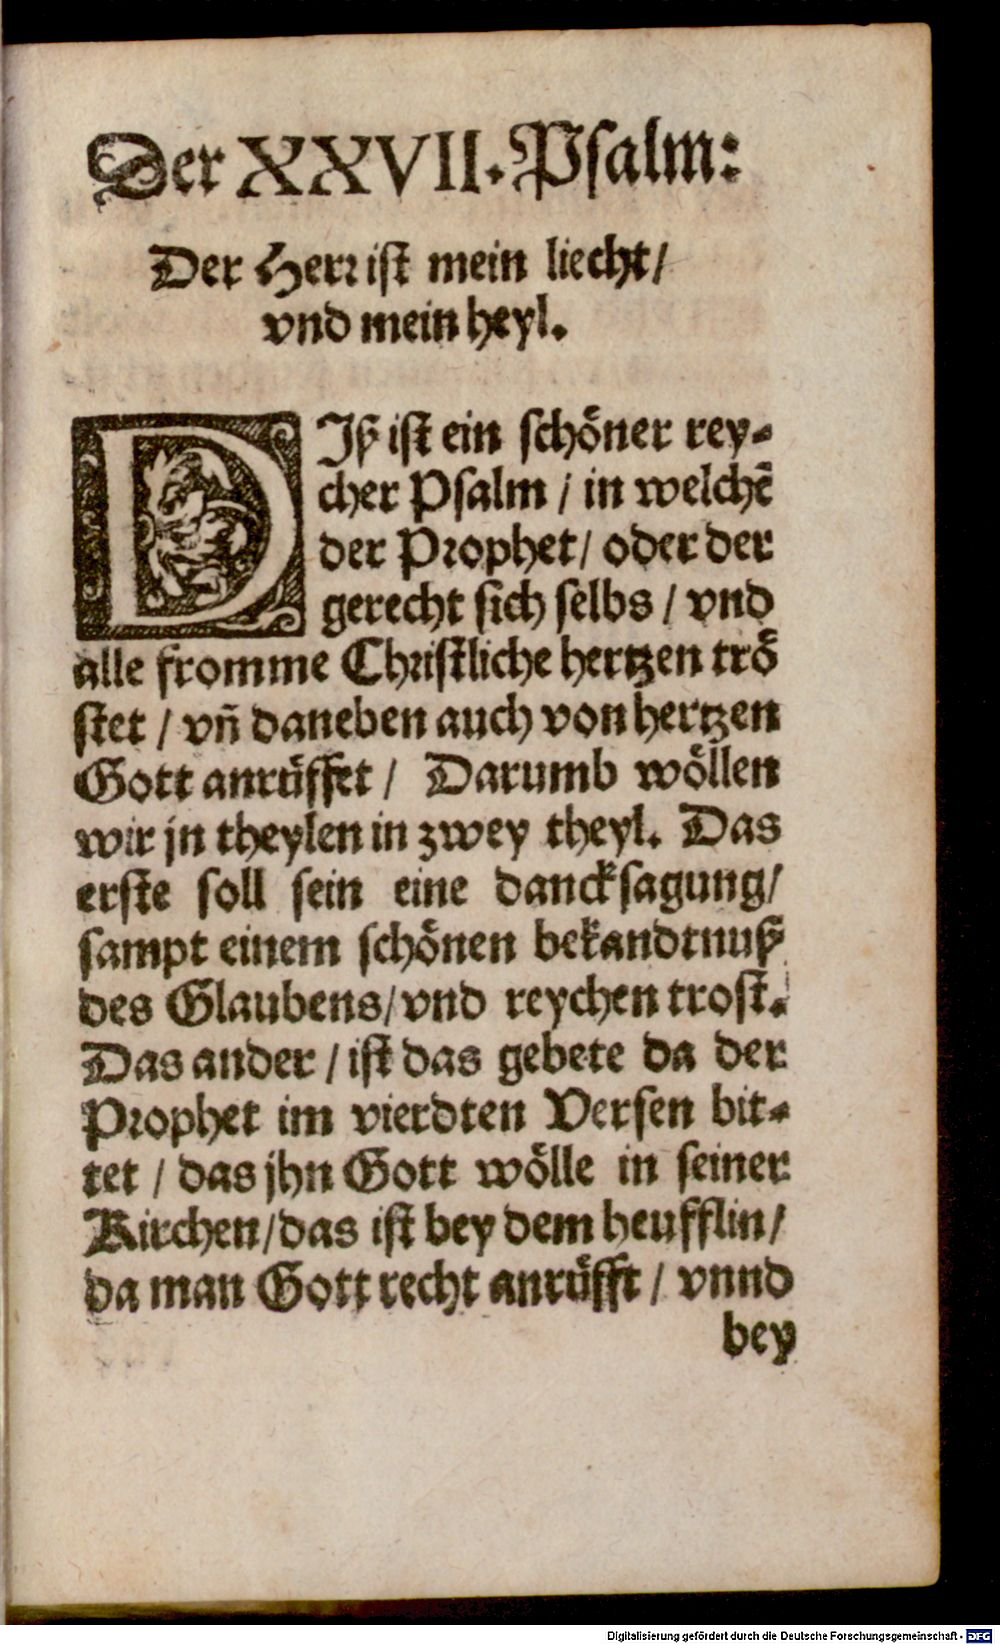 Der XXVII. Psalm:
Der Herr ist mein liecht/
vnd mein heyl.
DIß ist ein schöner rey-
cher Psalm / in welchẽ
der Prophet/ oder der
gerecht sich selbs / vnd
alle fromme Christliche hertzen trö
stet / vñ daneben auch von hertzen
Gott anrüffet / Darumb wöllen
wir jn theylen in zwey theyl. Das
erste soll sein eine dancksagung/
sampt einem schönen bekandtnuß
des Glaubens/ vnd reychen trost.
Das ander / ist das gebete da der
Prophet im vierdten Versen bit-
tet / das jhn Gott wölle in seiner
Kirchen/ das ist bey dem heufflin/
da man Gott recht anrüfft / vnnd
bey
Digitalisierung gefördert durch die Deutsche Forschungsgemeinschaft - DFG